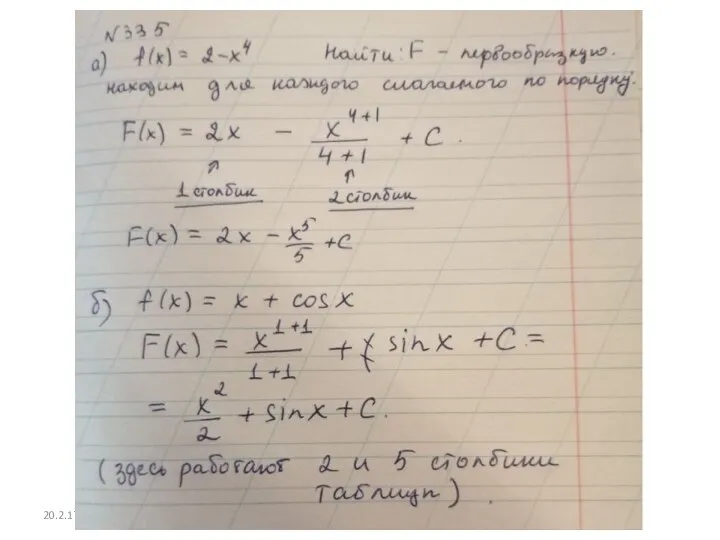 N335
а) f(x) = 2-x⁴ Найти: F - первообразную.
находим для каждого слагаемого по порядку.
F(x) = 2x - x⁴⁺¹/4+1 + C.
↑ ↑
1 столбик 2 столбик
F(x) = 2x - x⁵/5 + C
б) f(x) = x + cosx
F(x) = x¹⁺¹/1+1 + sinx + C =
= x²/2 + sinx + C.
(здесь работают 2 и 5 столбики
таблицы).
20.2.1